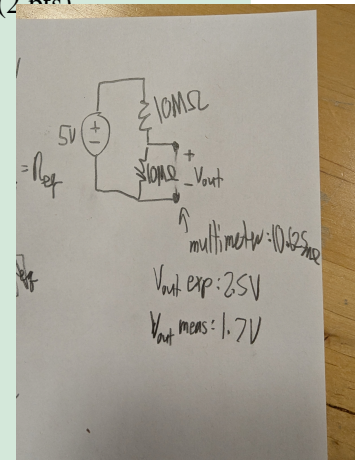 (2 pts)
10MΩ
5V
+
-
10MΩ
+
- Vout
= Req
multimeter: 10.625MΩ
Vout exp: 2.5V
Vout meas: 1.7V